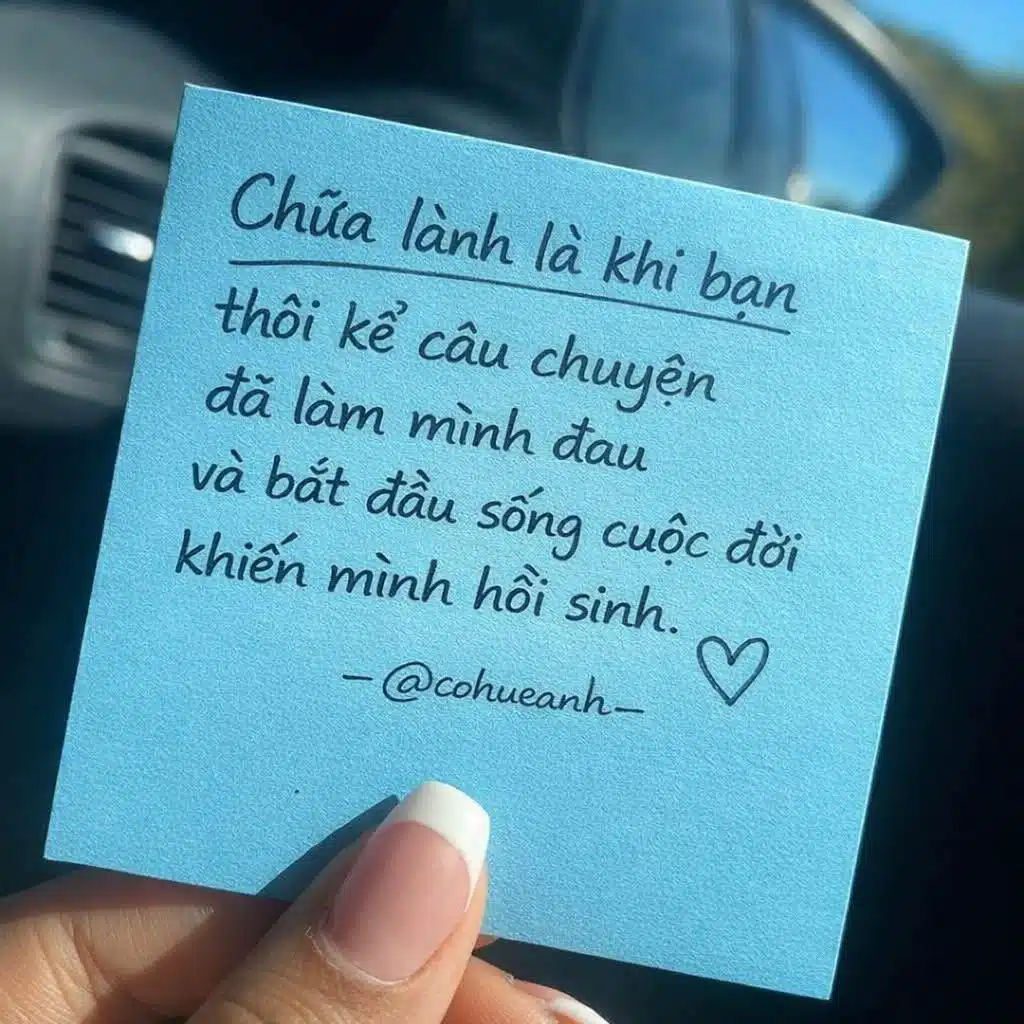 Chữa lành là khi bạn
thôi kể câu chuyện
đã làm mình đau
và bắt đầu sống cuộc đời
khiến mình hồi sinh.
—@cohueanh—